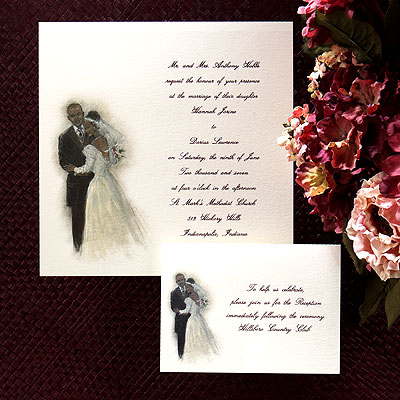 Mr. and Mrs. Anthony Hobbs
request the honour of your presence
at the marriage of their daughter
Hannah Jorine
to
Darius Lawrence
on Saturday, the ninth of June
Two thousand and seven
at four o'clock in the afternoon
St. Mark's Methodist Church
319 Hickory Hills
Indianapolis, Indiana
To help us celebrate,
please join us for the Reception
immediately following the ceremony
Hillsboro Country Club